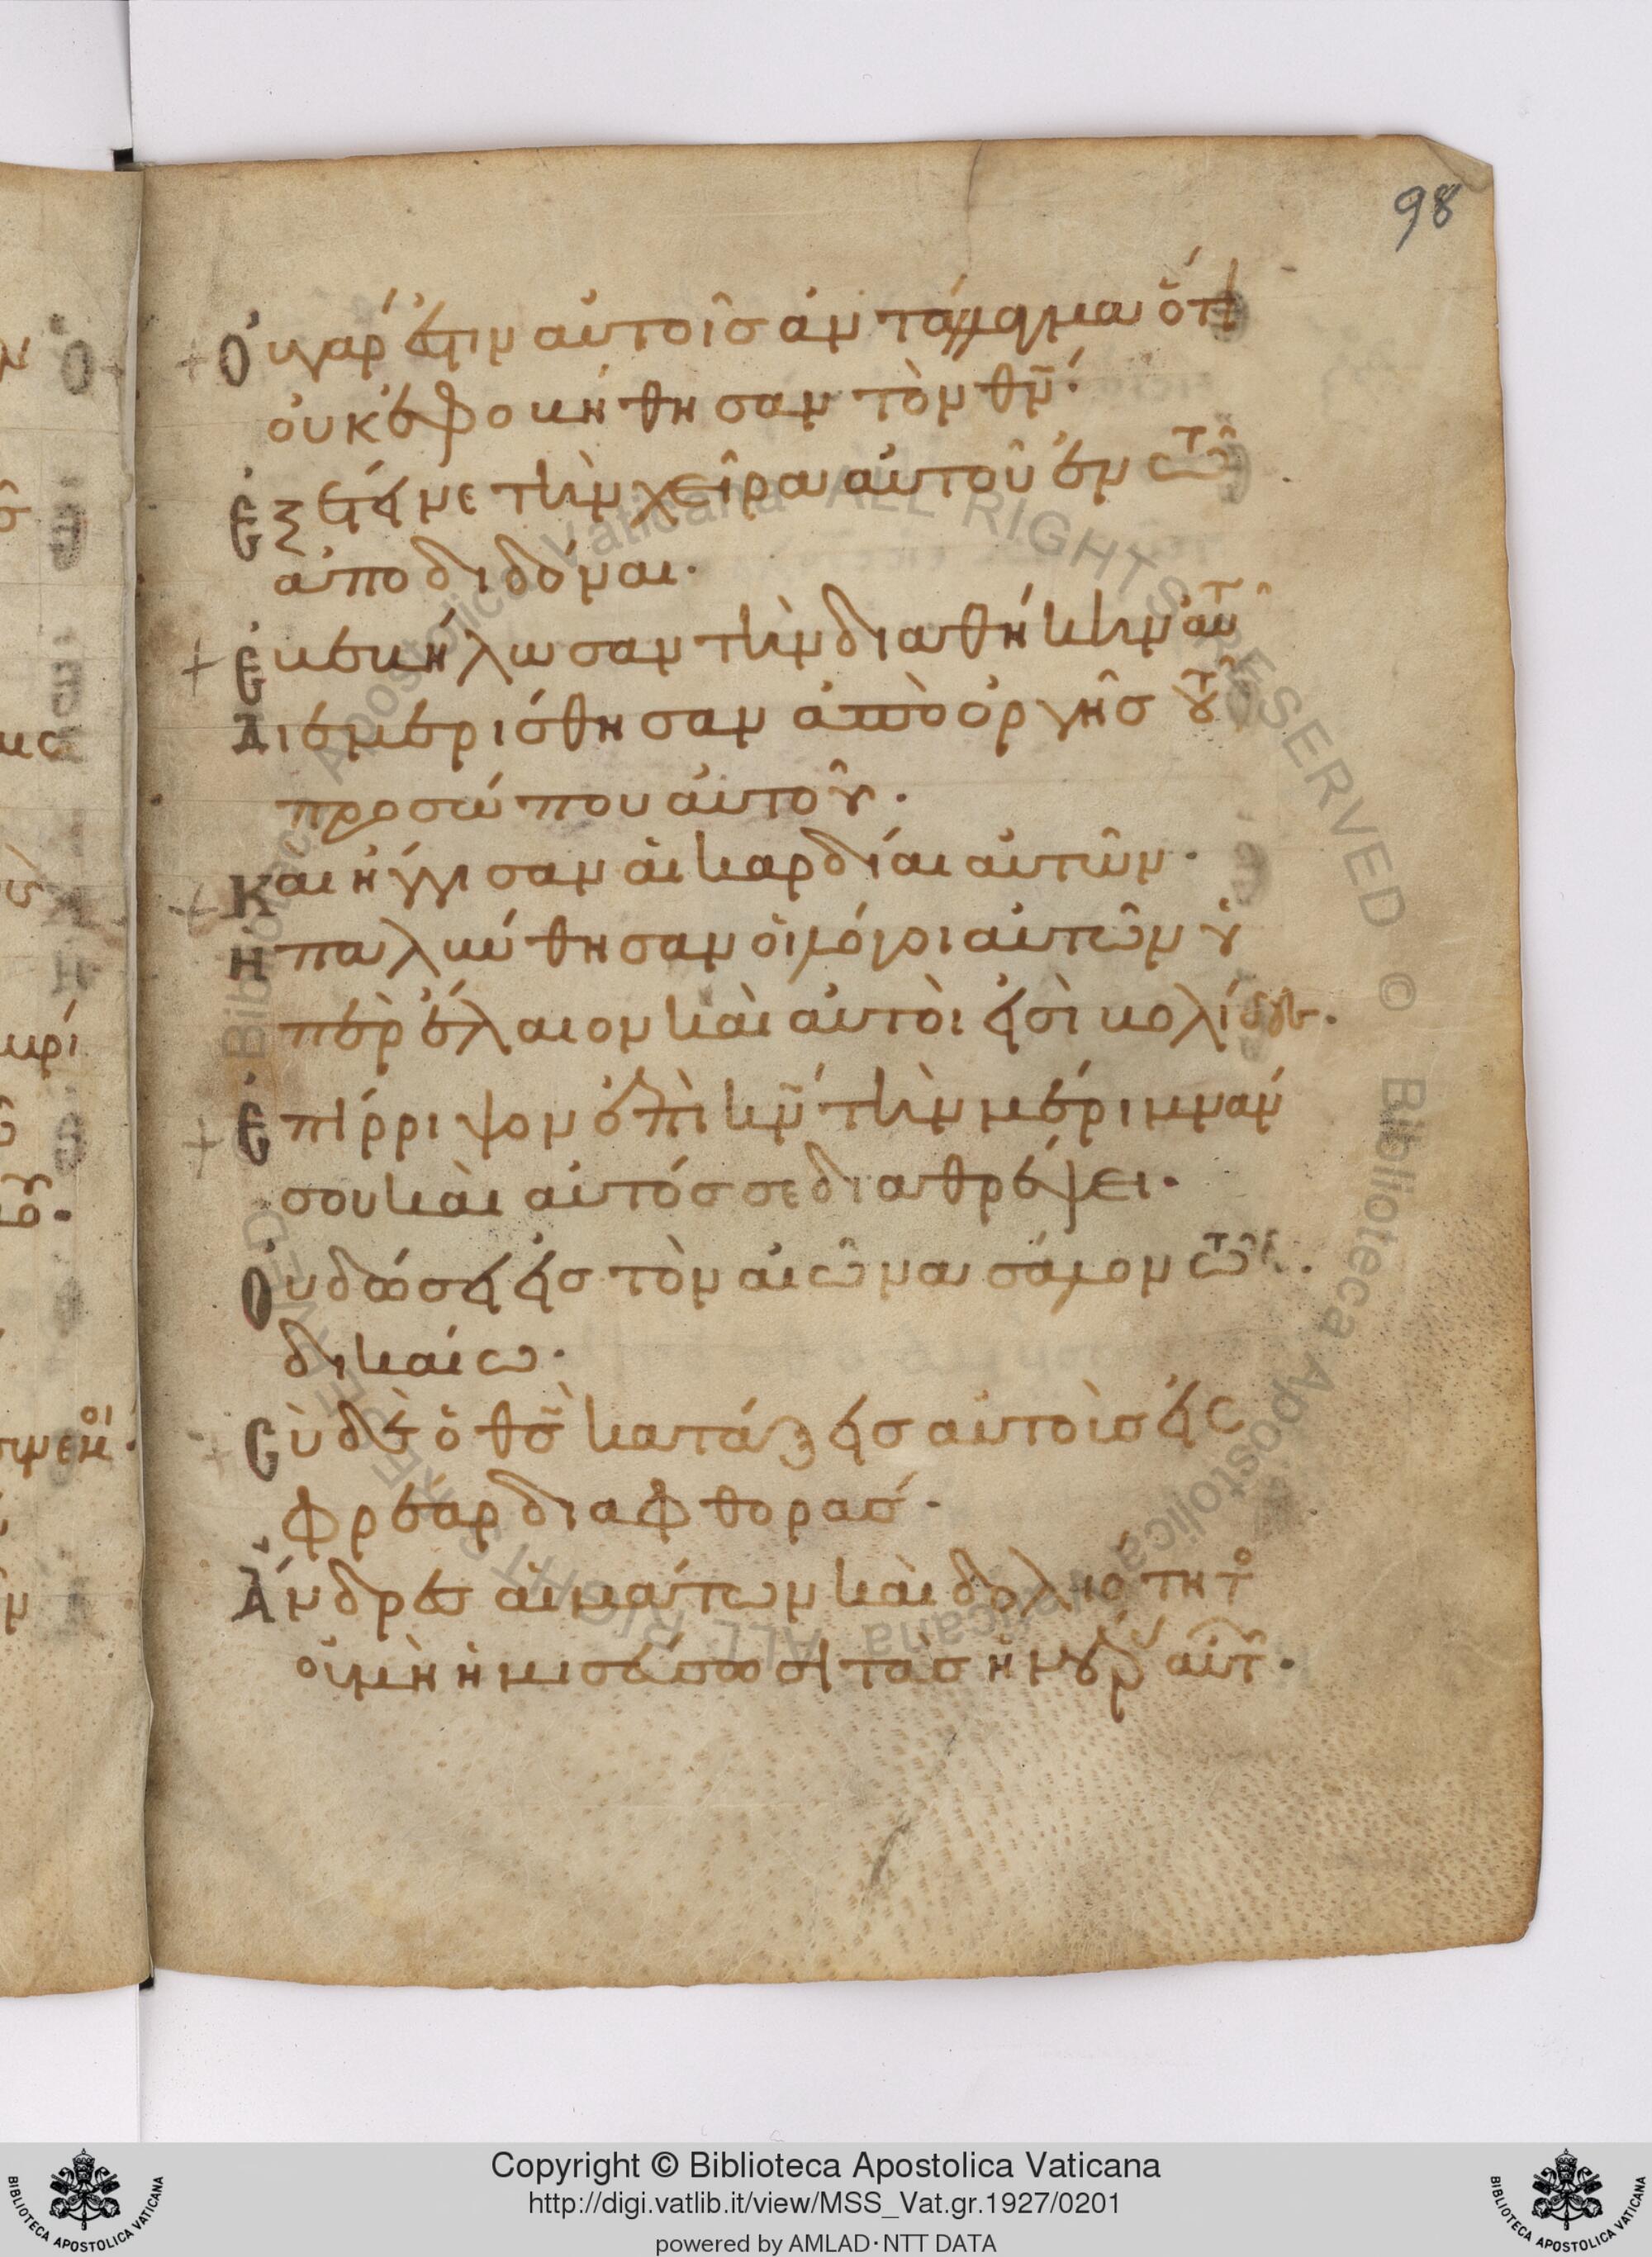 98
Ὀυ γάρ ἐστιν αὐτοῖσ ἀντάλλαγμα ὅτι
οὐκ ἐφοβήθησαν τὸν θν̄·
Ἐξέτεινε τὴν χεῖρα αὐτοῦ ἐν τῶ
ἀποδιδόναι·
Ἐβεβήλωσαν τὴν διαθήκην αὐτοῦ
Διεμερίσθησαν ἀπὸ ὀργῆσ τοῦ
προσώπου αὐτοῦ·
Και ἤγγισαν αἱ καρδίαι αὐτῶν·
Ηπαλύνθησαν οἱ λόγοι αὐτῶν ὑ
πὲρ ἔλαιον καὶ αὐτοὶ εἰσὶ βολίδες·
Ἐπίρριψον ἐπὶ κν̄ τὴν μέριμνάν
σου καὶ αὐτόσ σε διαθρέψει·
Ὀυ δώσει εἰσ τὸν αἰῶνα σάλον τῶ
δικαίω·
Σὺ δὲ ὁ θσ̄ κατάξεισ αὐτοὺσ εἰσ
φρέαρ διαφθορασ·
Ἄνδρεσ αἱμάτων καὶ δολιότητο
οὐ μὴ ἡμισεύσωσι τὰσ ἡμέρ αὐτ·
Copyright © Biblioteca Apostolica Vaticana
http://digi.vatlib.it/view/MSS_Vat.gr.1927/0201
powered by AMLAD·NTT DATA
BIBLIOTECA APOSTOLICA VATICANA
BIBLIOTECA APOSTOLICA VATICANA